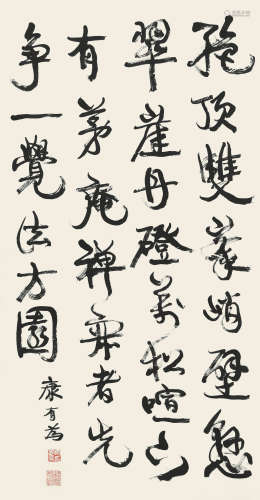 絕頂雙峯峭壁懸
翠崖丹磴萬松喧山
有茅庵禪弈者先
爭一覺法方園
康有為